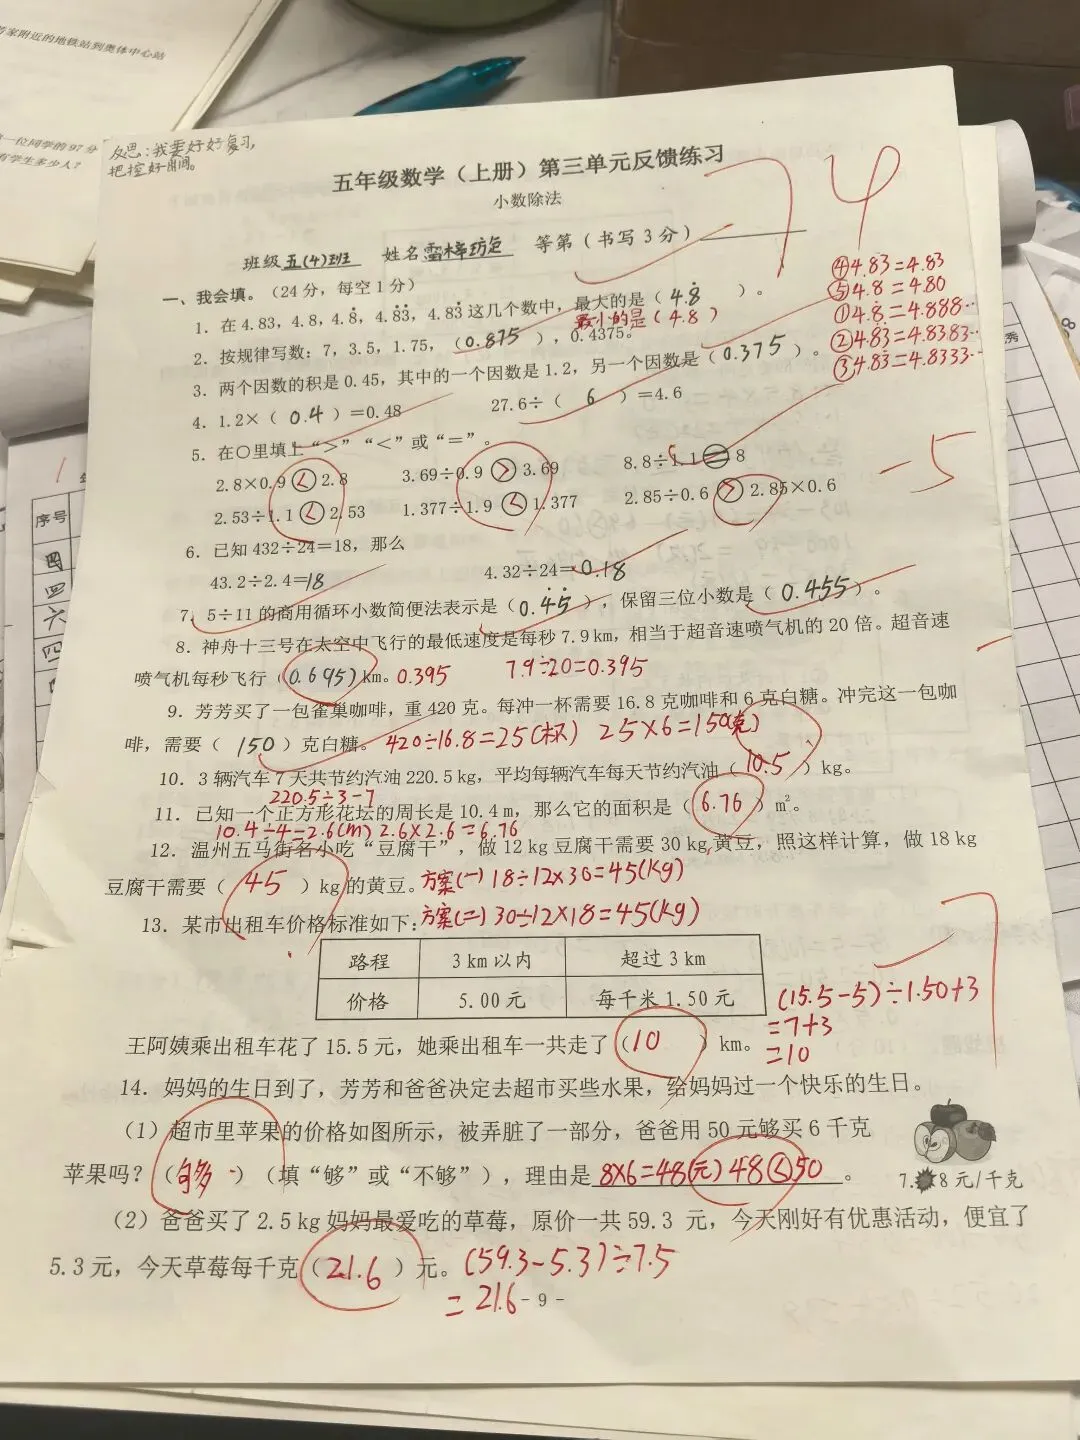 等家附近的地铁站到奥体中心站
一位同学的97分
有学生多少人?
反思:我要好好复习,
把控好时间。
五年级数学(上册)第三单元反馈练习
74
小数除法
班级五(4)班 姓名 等第(书写3分)
一、我会填。(24分,每空1分)
1. 在4.83,4.8,4.8̇,4.8̇3̇,4.83̇这几个数中,最大的是(4.8̇)。
最小的是(4.8)
④4.83=4.83
⑤4.8=4.80
①4.8̇=4.888…
②4.8̇3̇=4.8383…
③4.83̇=4.8333…
2. 按规律写数:7,3.5,1.75,(0.875),0.4375。
3. 两个因数的积是0.45,其中的一个因数是1.2,另一个因数是(0.375)。
4. 1.2×(0.4)=0.48 27.6÷(6)=4.6
5. 在○里填上“>”“<”或“=”。
2.8×0.9<2.8 3.69÷0.9>3.69 8.8÷1.1=8
2.53÷1.1<2.53 1.377÷1.9<1.377 2.85÷0.6>2.85×0.6
-5
6. 已知432÷24=18,那么
43.2÷2.4=18 4.32÷24=0.18
7. 5÷11的商用循环小数简便法表示是(0.4̇5̇),保留三位小数是(0.455)。
8. 神舟十三号在太空中飞行的最低速度是每秒7.9km,相当于超音速喷气机的20倍。超音速
喷气机每秒飞行(0.695)km。0.395 7.9÷20=0.395
9. 芳芳买了一包雀巢咖啡,重420克。每冲一杯需要16.8克咖啡和6克白糖。冲完这一包咖
啡,需要(150)克白糖。420÷16.8=25(杯) 25×6=150(克)
10. 3辆汽车7天共节约汽油220.5kg,平均每辆汽车每天节约汽油(10.5)kg。
220.5÷3-7
11. 已知一个正方形花坛的周长是10.4m,那么它的面积是(6.76)m²。
10.4÷4=2.6(m) 2.6×2.6=6.76
12. 温州五马街名小吃“豆腐干”,做12kg豆腐干需要30kg黄豆,照这样计算,做18kg
豆腐干需要(45)kg的黄豆。方案(一)18÷12×30=45(kg)
13. 某市出租车价格标准如下:方案(二)30÷12×18=45(kg)
路程 3km以内 超过3km
价格 5.00元 每千米1.50元
(15.5-5)÷1.50+3
=7+3
=10
王阿姨乘出租车花了15.5元,她乘出租车一共走了(10)km。
14. 妈妈的生日到了,芳芳和爸爸决定去超市买些水果,给妈妈过一个快乐的生日。
(1)超市里苹果的价格如图所示,被弄脏了一部分,爸爸用50元够买6千克
苹果吗?(够)(填“够”或“不够”),理由是8×6=48(元)48<50。
7. 8元/千克
(2)爸爸买了2.5kg妈妈最爱吃的草莓,原价一共59.3元,今天刚好有优惠活动,便宜了
5.3元,今天草莓每千克(21.6)元。(59.3-5.3)÷7.5
=21.6
- 9 -
序号
四
四
六
四
秀
8